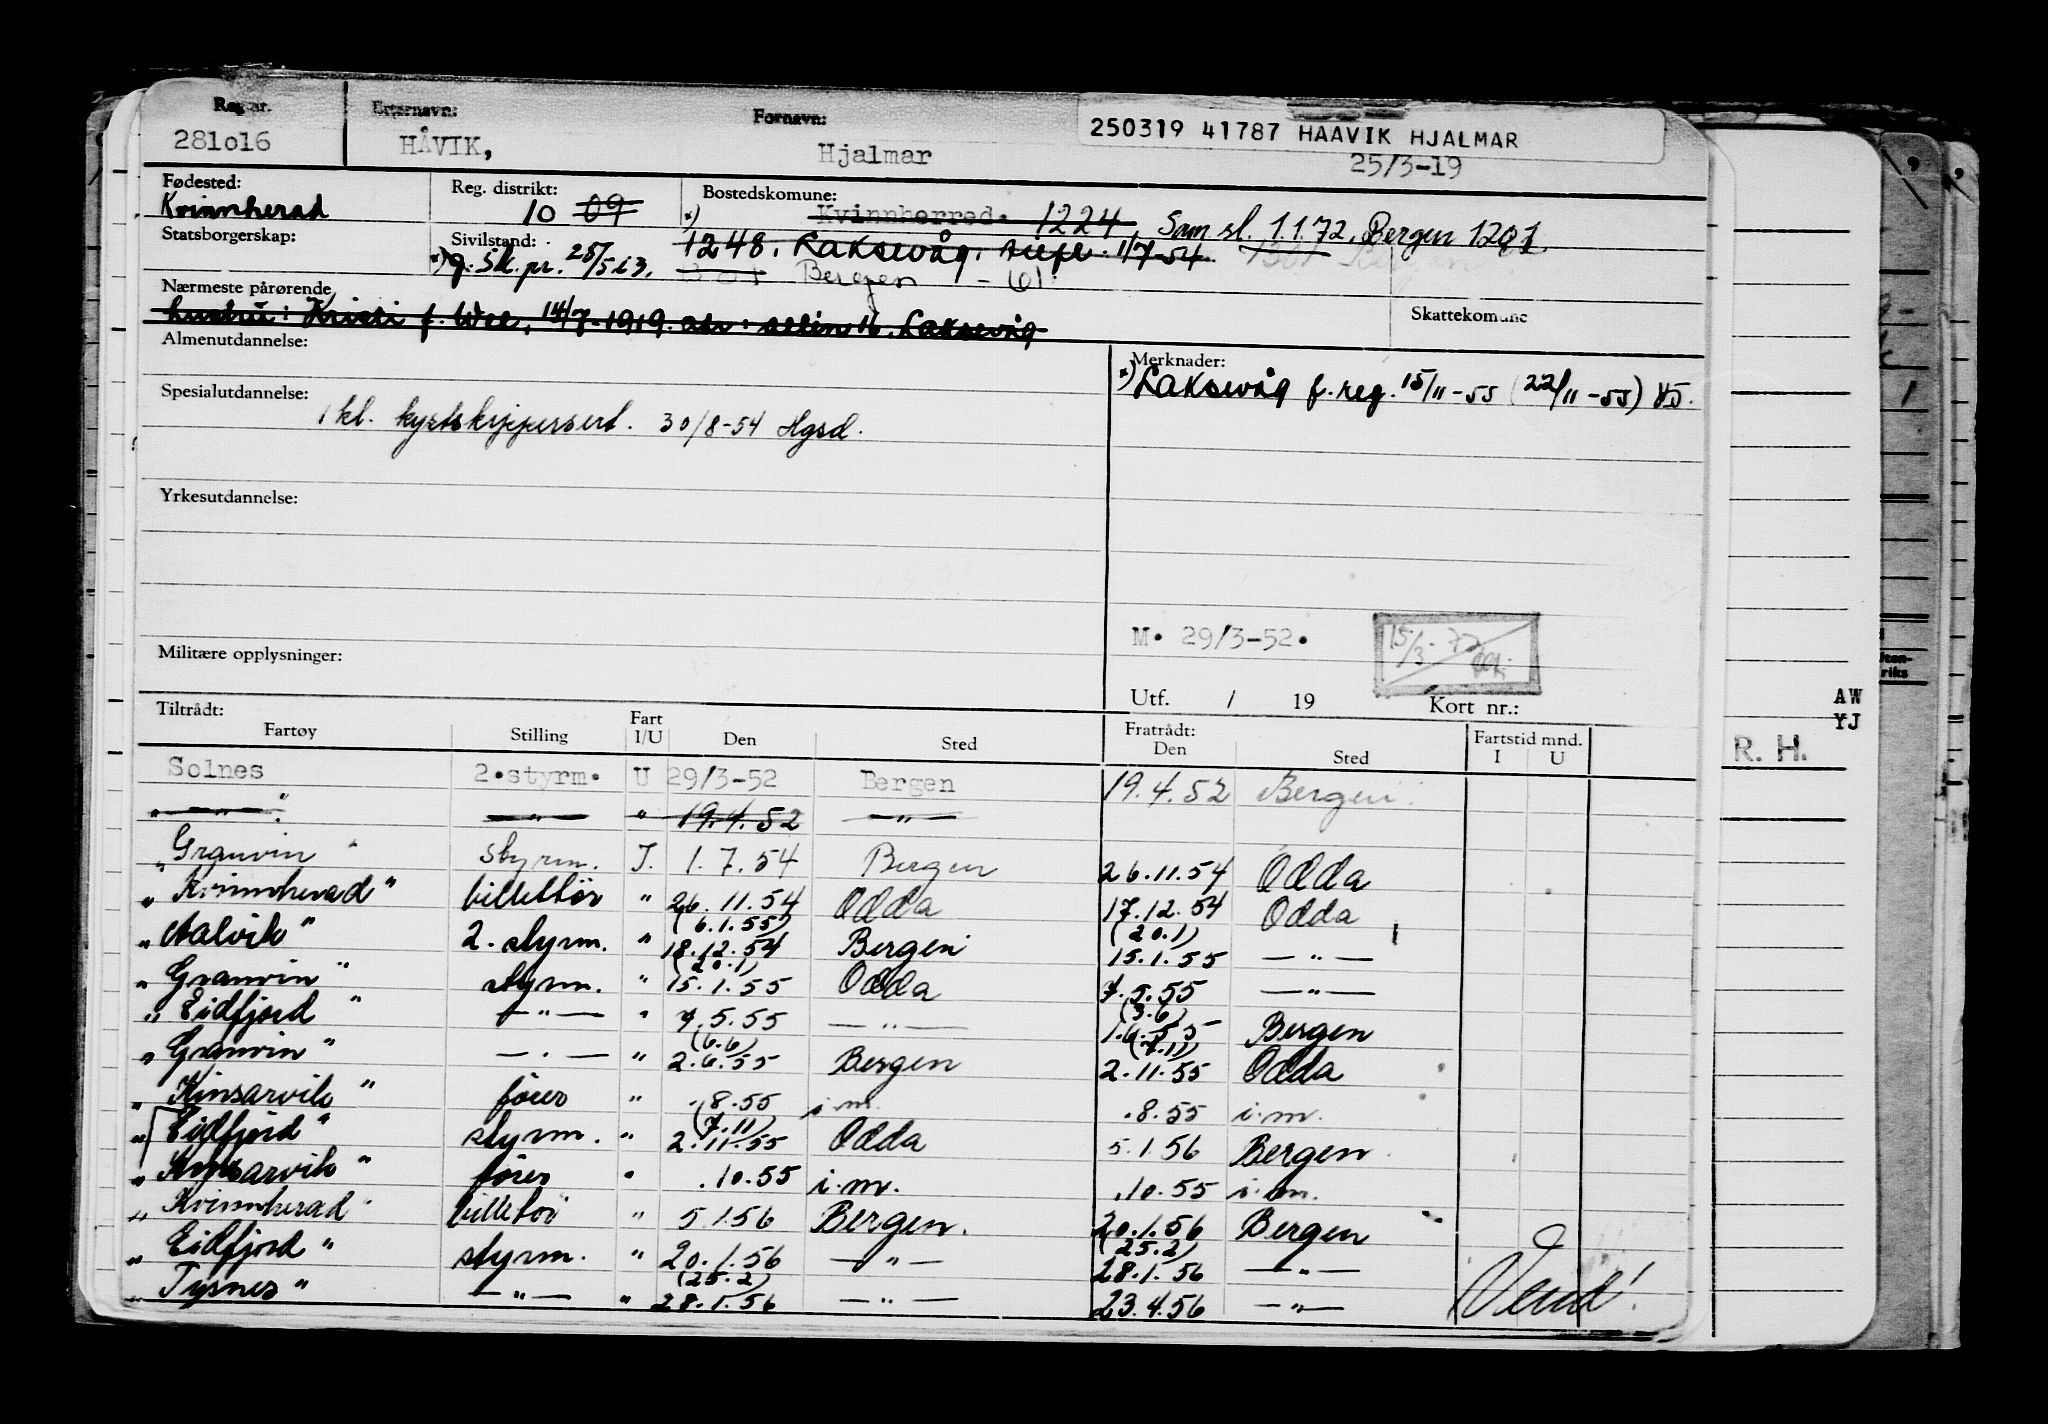 Reg. nr. Etternavn: Fornavn: 250319 41787 HAAVIK HJALMAR
281o16 HÅVIK, Hjalmar 25/3-19
Fødested: Reg. distrikt: Bostedskomune:
Kvinnherad 10 09 *) Kvinnherred. 1224, Sam.sl. 1.1.72, Bergen 1201.
Statsborgerskap: Sivilstand: 1248. Laksevåg. 1/7-54.
*) g. Sk. pr. 25/5 63. 301 Bergen - (6)
Nærmeste pårørende Skattekomune
hustru: f. Wee, 14/7-1919. adr: Laksevåg
Almenutdannelse: Merknader:
*) Laksevåg f. reg. 15/11-55 (22/11-55)
Spesialutdannelse:
1 kl. kystskippersert. 30/8-54 Hgsd.
Yrkesutdannelse:
M. 29/3-52. 15/3-72
Militære opplysninger:
Utf. / 19 Kort nr.:
AW
YJ
R. H.
Tiltrådt: Fratrådt:
Fartøy Stilling Fart I/U Den Sted Den Sted Fartstid mnd. I U
Solnes 2.styrm. U 29/3-52 Bergen 19.4.52 Bergen
" — " — " — " — " 19.4.52 — " —
" Granvin " styrm. I. 1.7.54 Bergen 26.11.54 Odda
" Kvinnherad " billettør " 26.11.54 Odda 17.12.54 Odda
(6.1.55) (20.1)
" Aalvik " 2. styrm. " 18.12.54 Bergen 15.1.55 — " —
(20.1)
" Granvin " styrm. " 15.1.55 Odda 7.5.55 — " —
(3.6)
" Eidfjord " — " — " 7.5.55 — " — 1.6.55 Bergen
(6.6) (7.11)
" Granvin " — " — " 2.6.55 Bergen 2.11.55 Odda
" Kinsarvik " fører " .8.55 i.m. .8.55 i.m.
(7.11)
" Eidfjord " styrm. " 2.11.55 Odda 5.1.56 Bergen
" Kinsarvik " fører " .10.55 i.m. .10.55 i.m.
" Kvinnherad " billettør " 5.1.56 Bergen. 20.1.56 Bergen
(25.2)
" Eidfjord " styrm. " 20.1.56 — " — 28.1.56 — " —
(25.2)
" Tysnes " — " — " 28.1.56 — " — 23.4.56 — " —
Vend!